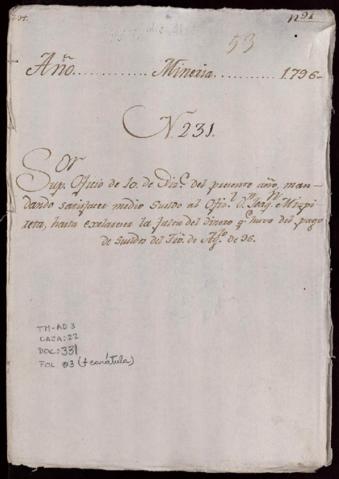 nº 1
53
Año............ Mineria............ 1796
N. 231.
Sor
Sup. Oficio de 10. de Dize. del presente año, man-
dando satisfacer medio sueldo al Ofizl. D. Joaqn.
tera, hasta exclarecer la falta del dinero qe. huvo del pago
de sueldos del Tro. de Agto. de 96.
TM-AD3
CAJA: 22
DOC: 331
FOL 03 (+ carátula)